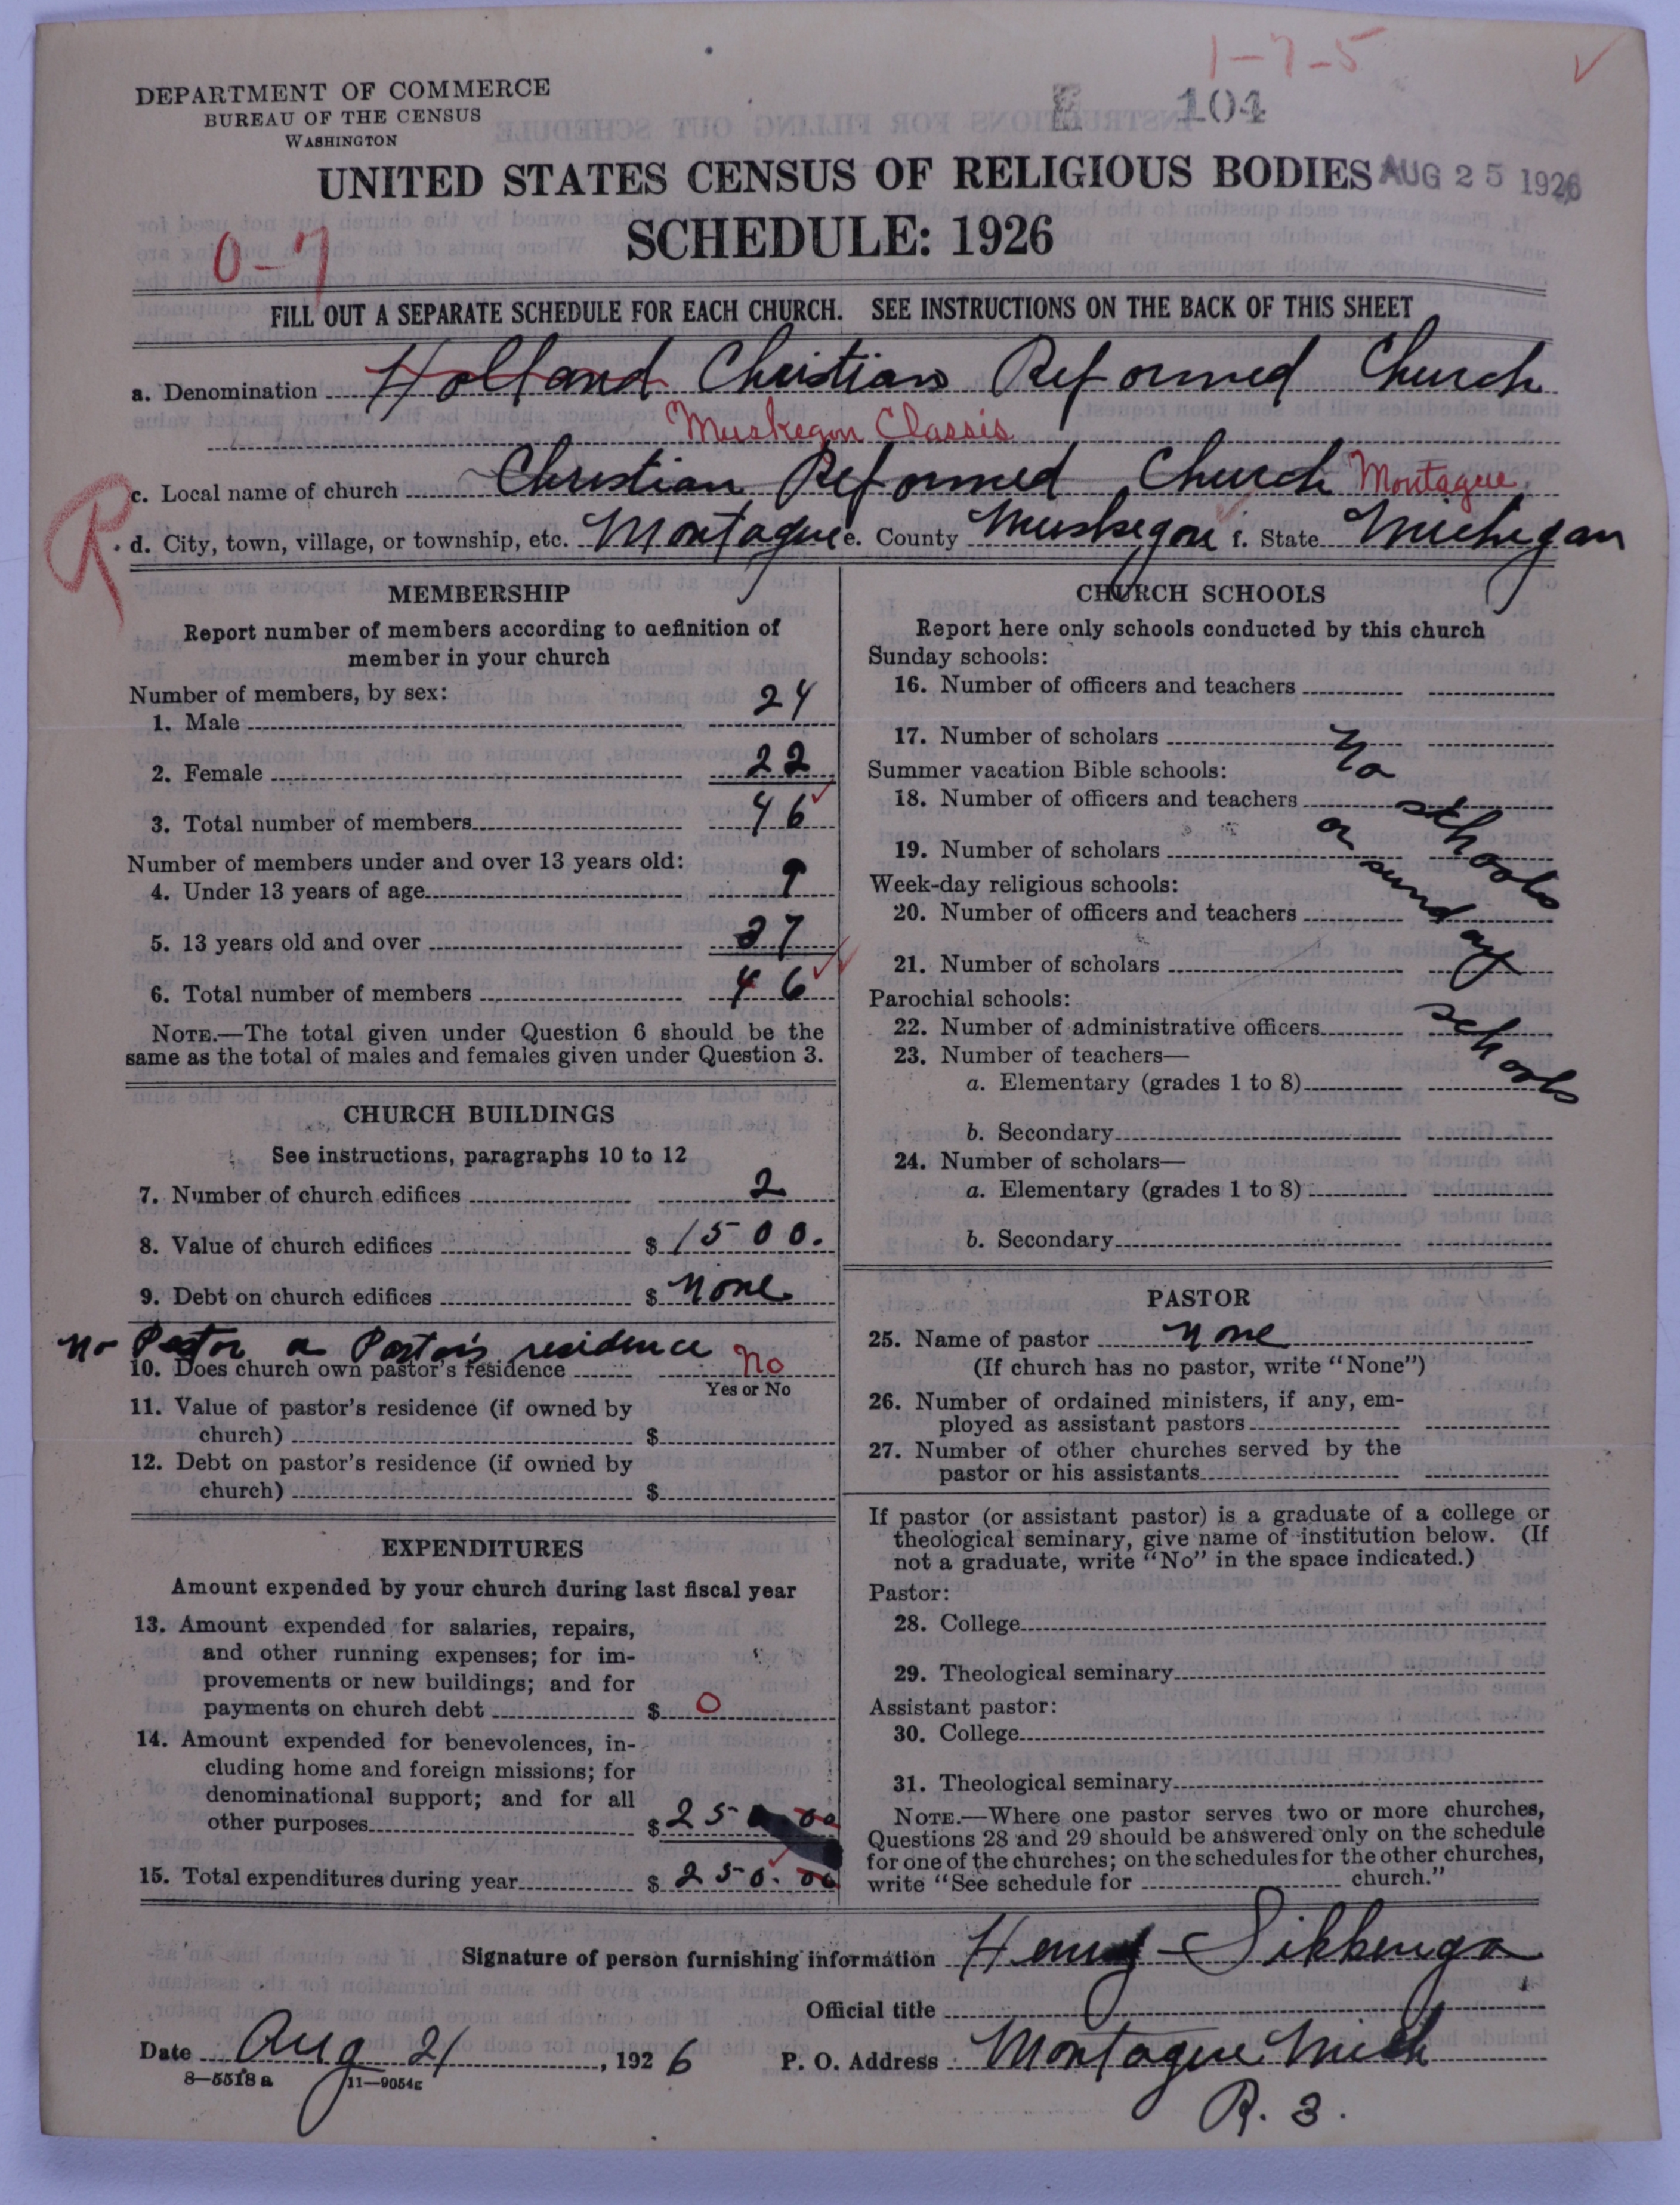 1-7-5 ✓
DEPARTMENT OF COMMERCE
BUREAU OF THE CENSUS
WASHINGTON
E 104
UNITED STATES CENSUS OF RELIGIOUS BODIES AUG 25 1926
SCHEDULE: 1926
0-7
FILL OUT A SEPARATE SCHEDULE FOR EACH CHURCH. SEE INSTRUCTIONS ON THE BACK OF THIS SHEET
a. Denomination Holland Christian Reformed Church
Muskegon Classis
R
c. Local name of church Christian Reformed Church Montague
d. City, town, village, or township, etc. Montague e. County Muskegon f. State Michigan
MEMBERSHIP
Report number of members according to definition of
member in your church
Number of members, by sex:
1. Male 24
2. Female 22
3. Total number of members 46
Number of members under and over 13 years old:
4. Under 13 years of age 9
5. 13 years old and over 37
6. Total number of members 46
NOTE.—The total given under Question 6 should be the
same as the total of males and females given under Question 3.
CHURCH BUILDINGS
See instructions, paragraphs 10 to 12
7. Number of church edifices 2
8. Value of church edifices $ 1500.
9. Debt on church edifices $ none
no Pastor or Pastor's residence
10. Does church own pastor's residence No
Yes or No
11. Value of pastor's residence (if owned by
church) $
12. Debt on pastor's residence (if owned by
church) $
EXPENDITURES
Amount expended by your church during last fiscal year
13. Amount expended for salaries, repairs,
and other running expenses; for im-
provements or new buildings; and for
payments on church debt $ 0
14. Amount expended for benevolences, in-
cluding home and foreign missions; for
denominational support; and for all
other purposes $ 250 00
15. Total expenditures during year $ 250. 00
CHURCH SCHOOLS
Report here only schools conducted by this church
Sunday schools:
16. Number of officers and teachers
17. Number of scholars
Summer vacation Bible schools:
18. Number of officers and teachers
19. Number of scholars
Week-day religious schools:
20. Number of officers and teachers
21. Number of scholars
Parochial schools:
22. Number of administrative officers
23. Number of teachers—
a. Elementary (grades 1 to 8)
b. Secondary
24. Number of scholars—
a. Elementary (grades 1 to 8)
b. Secondary
no schools
or sunday schools
PASTOR
25. Name of pastor none
(If church has no pastor, write "None")
26. Number of ordained ministers, if any, em-
ployed as assistant pastors
27. Number of other churches served by the
pastor or his assistants
If pastor (or assistant pastor) is a graduate of a college or
theological seminary, give name of institution below. (If
not a graduate, write "No" in the space indicated.)
Pastor:
28. College
29. Theological seminary
Assistant pastor:
30. College
31. Theological seminary
NOTE.—Where one pastor serves two or more churches,
Questions 28 and 29 should be answered only on the schedule
for one of the churches; on the schedules for the other churches,
write "See schedule for church."
Signature of person furnishing information Henry Sikkenga
Official title
Date Aug 21, 1926 P. O. Address Montague Mich
8—5518 a 11—9054g
R. 3.